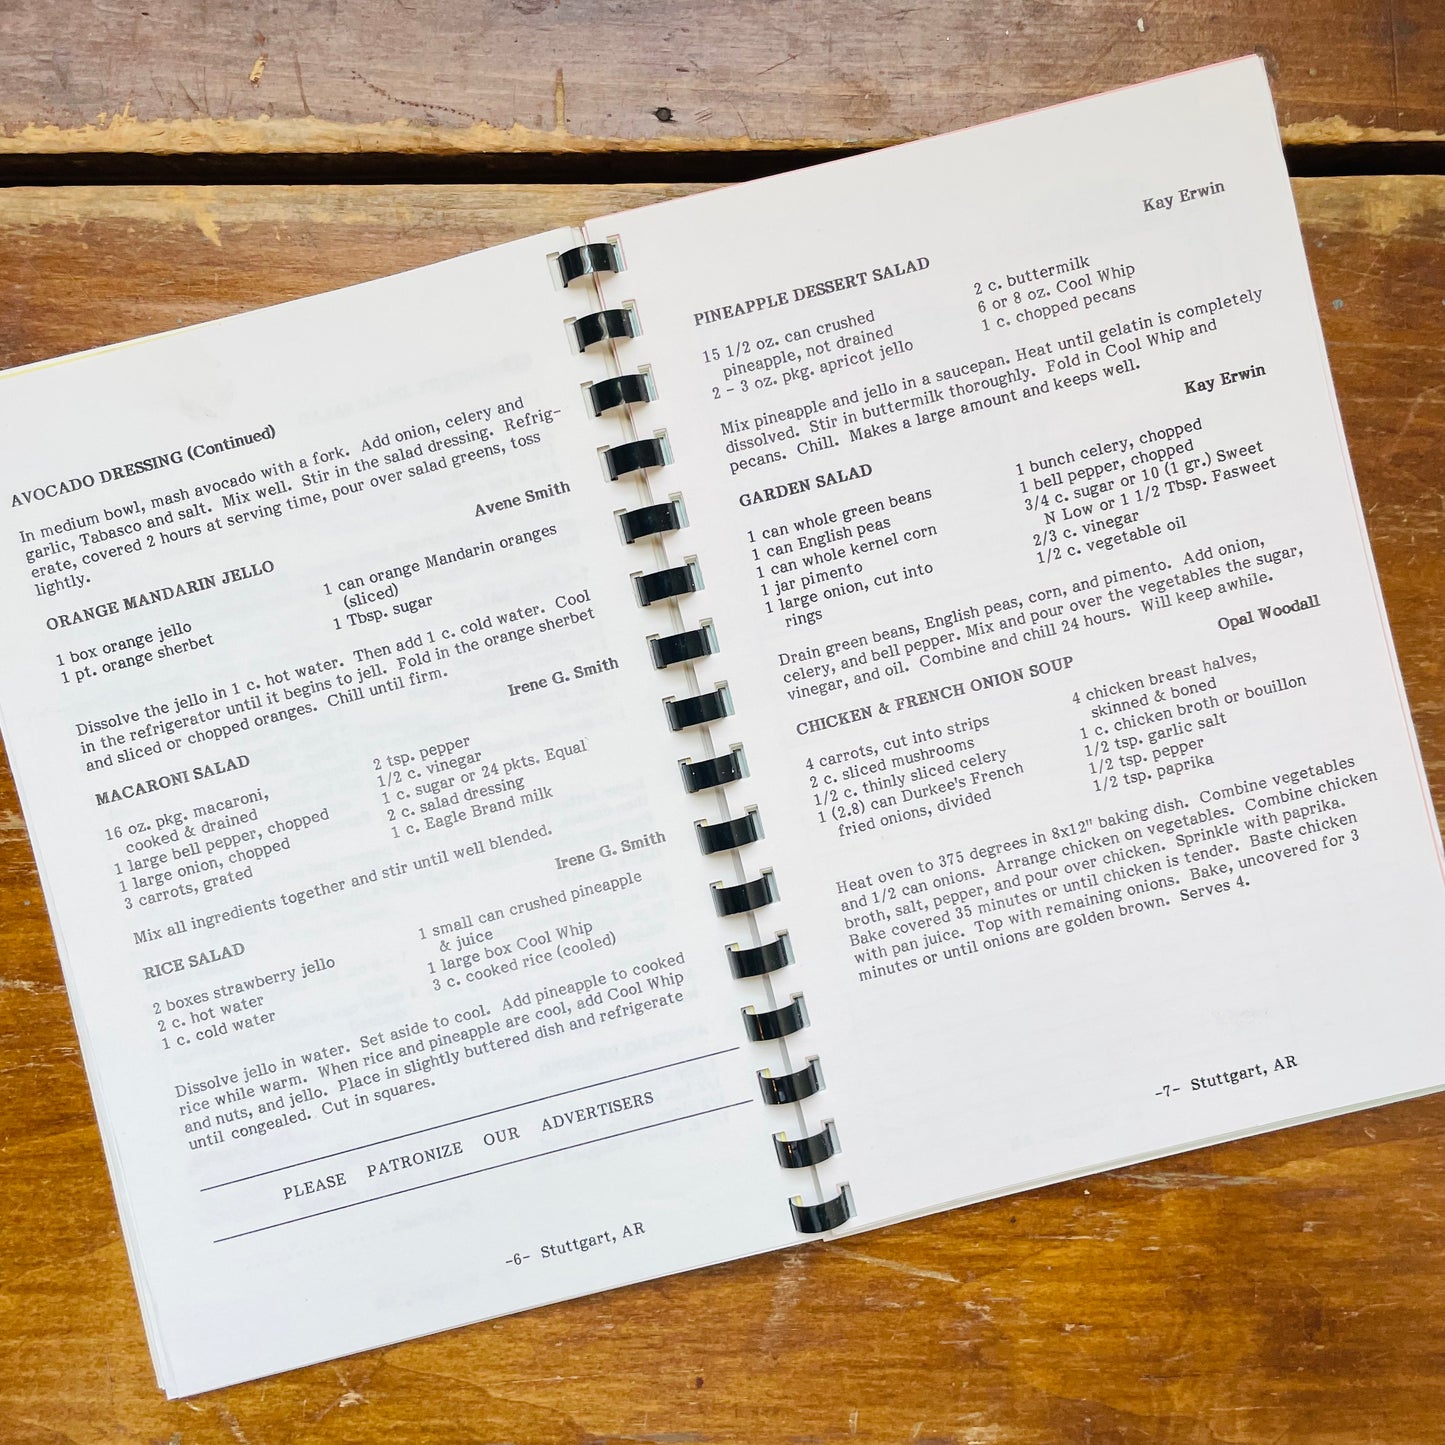 AVOCADO DRESSING (Continued)
In medium bowl, mash avocado with a fork. Add onion, celery and
garlic, Tabasco and salt. Mix well. Stir in the salad dressing. Refrig-
erate, covered 2 hours at serving time, pour over salad greens, toss
lightly.
Avene Smith
ORANGE MANDARIN JELLO
1 box orange jello
1 pt. orange sherbet
1 can orange Mandarin oranges
(sliced)
1 Tbsp. sugar
Dissolve the jello in 1 c. hot water. Then add 1 c. cold water. Cool
in the refrigerator until it begins to jell. Fold in the orange sherbet
and sliced or chopped oranges. Chill until firm.
Irene G. Smith
MACARONI SALAD
16 oz. pkg. macaroni,
cooked & drained
1 large bell pepper, chopped
1 large onion, chopped
3 carrots, grated
2 tsp. pepper
1/2 c. vinegar
1 c. sugar or 24 pkts. Equal
2 c. salad dressing
1 c. Eagle Brand milk
Mix all ingredients together and stir until well blended.
Irene G. Smith
RICE SALAD
2 boxes strawberry jello
2 c. hot water
1 c. cold water
1 small can crushed pineapple
& juice
1 large box Cool Whip
3 c. cooked rice (cooled)
Dissolve jello in water. Set aside to cool. Add pineapple to cooked
rice while warm. When rice and pineapple are cool, add Cool Whip
and nuts, and jello. Place in slightly buttered dish and refrigerate
until congealed. Cut in squares.
PLEASE PATRONIZE OUR ADVERTISERS
-6- Stuttgart, AR
Kay Erwin
PINEAPPLE DESSERT SALAD
15 1/2 oz. can crushed
pineapple, not drained
2 - 3 oz. pkg. apricot jello
2 c. buttermilk
6 or 8 oz. Cool Whip
1 c. chopped pecans
Mix pineapple and jello in a saucepan. Heat until gelatin is completely
dissolved. Stir in buttermilk thoroughly. Fold in Cool Whip and
pecans. Chill. Makes a large amount and keeps well.
Kay Erwin
GARDEN SALAD
1 can whole green beans
1 can English peas
1 can whole kernel corn
1 jar pimento
1 large onion, cut into
rings
1 bunch celery, chopped
1 bell pepper, chopped
3/4 c. sugar or 10 (1 gr.) Sweet
N Low or 1 1/2 Tbsp. Fasweet
2/3 c. vinegar
1/2 c. vegetable oil
Drain green beans, English peas, corn, and pimento. Add onion,
celery, and bell pepper. Mix and pour over the vegetables the sugar,
vinegar, and oil. Combine and chill 24 hours. Will keep awhile.
Opal Woodall
CHICKEN & FRENCH ONION SOUP
4 carrots, cut into strips
2 c. sliced mushrooms
1/2 c. thinly sliced celery
1 (2.8) can Durkee's French
fried onions, divided
4 chicken breast halves,
skinned & boned
1 c. chicken broth or bouillon
1/2 tsp. garlic salt
1/2 tsp. pepper
1/2 tsp. paprika
Heat oven to 375 degrees in 8x12" baking dish. Combine vegetables
and 1/2 can onions. Arrange chicken on vegetables. Combine chicken
broth, salt, pepper, and pour over chicken. Sprinkle with paprika.
Bake covered 35 minutes or until chicken is tender. Baste chicken
with pan juice. Top with remaining onions. Bake, uncovered for 3
minutes or until onions are golden brown. Serves 4.
-7- Stuttgart, AR